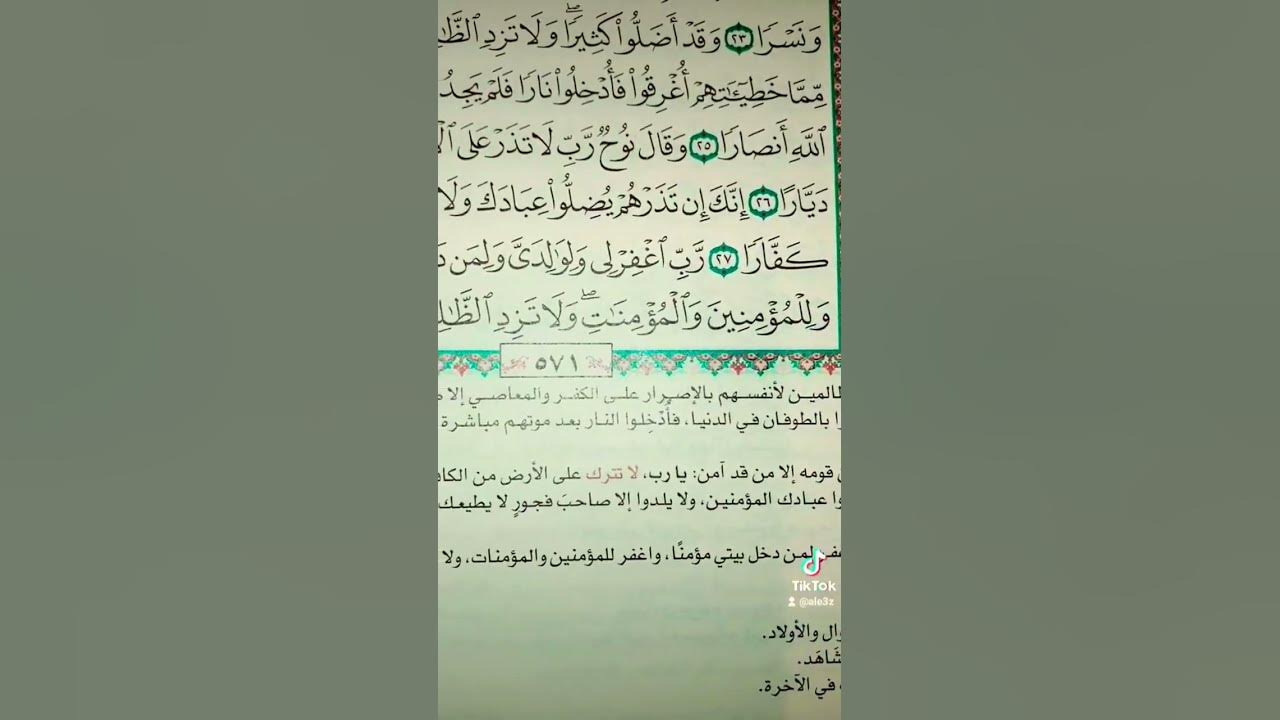 وَنَسْرًا ٢٣ وَقَدْ أَضَلُّوا۟ كَثِيرًا ۖ وَلَا تَزِدِ ٱلظَّـٰ
مِّمَّا خَطِيٓـَٔـٰتِهِمْ أُغْرِقُوا۟ فَأُدْخِلُوا۟ نَارًا فَلَمْ يَجِدُ
ٱللَّهِ أَنصَارًا ٢٥ وَقَالَ نُوحٌ رَّبِّ لَا تَذَرْ عَلَى ٱلْ
دَيَّارًا ٢٦ إِنَّكَ إِن تَذَرْهُمْ يُضِلُّوا۟ عِبَادَكَ وَلَا
كَفَّارًا ٢٧ رَّبِّ ٱغْفِرْ لِى وَلِوَٰلِدَىَّ وَلِمَن دَ
وَلِلْمُؤْمِنِينَ وَٱلْمُؤْمِنَـٰتِ ۖ وَلَا تَزِدِ ٱلظَّـٰلِ
٥٧١
ظالمين لأنفسهم بالإصرار على الكفر والمعاصي إلا
وا بالطوفان في الدنيا، فأُدْخِلوا النار بعد موتهم مباشرة
ن قومه إلا من قد آمن: يا رب، لا تترك على الأرض من الكاف
وا عبادك المؤمنين، ولا يلدوا إلا صاحبَ فجورٍ لا يطيعك
لمن دخل بيتي مؤمنًا، واغفر للمؤمنين والمؤمنات، ولا
وال والأولاد.
شَاهَد.
في الآخرة.
TikTok
@ele3z